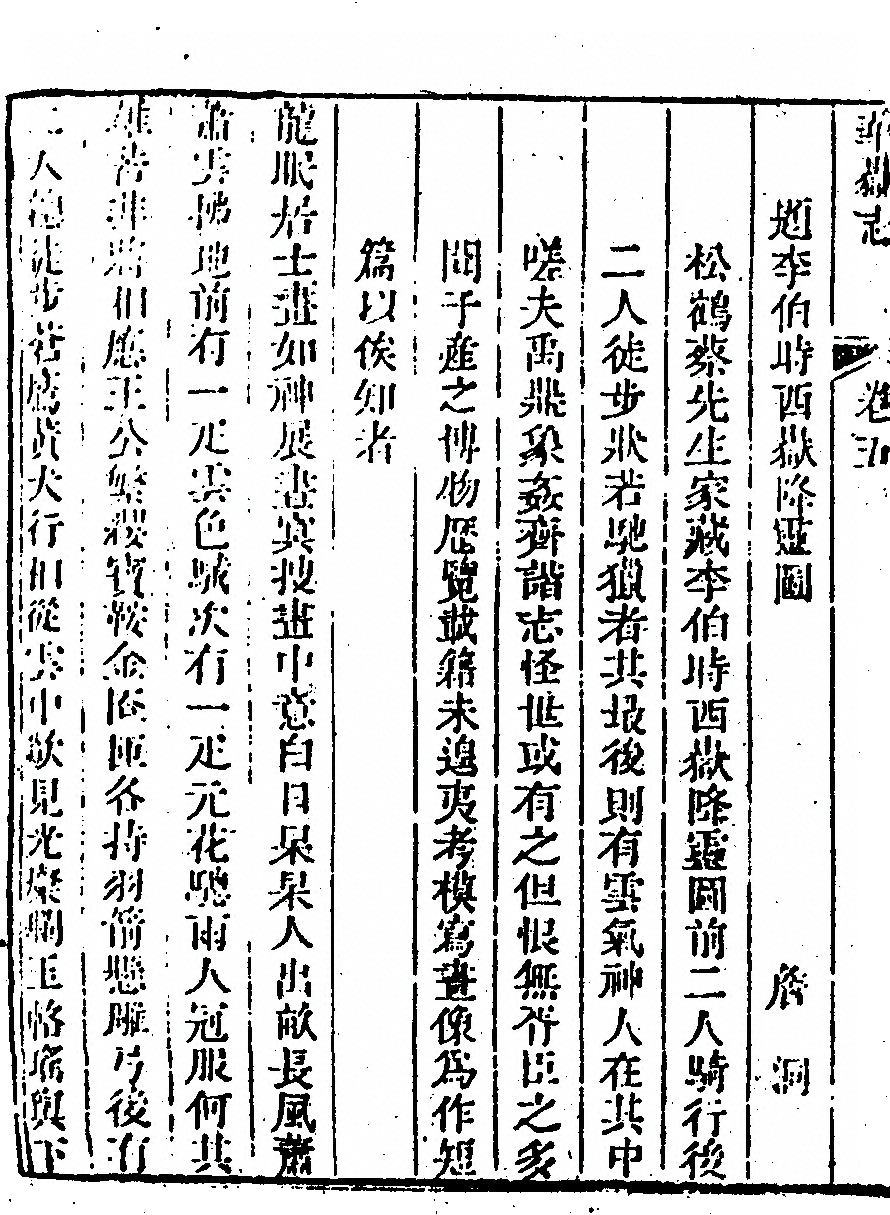 華嶽志 卷五
題李伯時西嶽降靈圖 詹 泂
松鶴蔡先生家藏李伯時西嶽降靈圖前二人騎行後
二人徒步狀若馳獵者其最後則有雲氣神人在其中
嗟夫禹鼎象姦齊諧志怪世或有之但恨無胥臣之多
聞子產之博物歷覽載籍未遑夷考模寫畫像為作短
篇以俟知者
龍眠居士畫如神展書寘搜畫中意白日杲杲人出敵長風蕭
蕭雲拂地前有一疋雲色駹次有一疋元花驄兩人冠服何其
雄若非將相應王公繁纓寶鞍金匼匝各持羽箭懸雕弓後有
二人德徒步蒼鷹黃犬行相從雲中欲見光燦爛玉輅瑤輿下